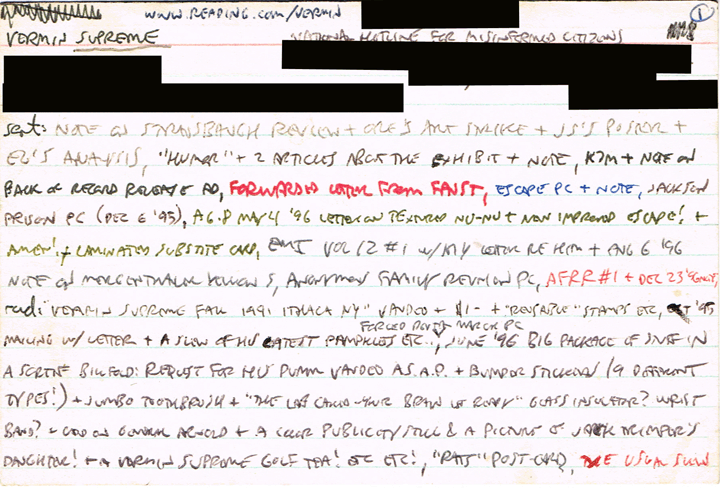 www.reading.com/vermin
1
VERMIN SUPREME NATIONAL HOTLINE FOR MISINFORMED CITIZENS
sent: NOTE ON STRAUSBAUGH REVIEW + ORE'S ART STRIKE + JS'S POSTER +
EL'S ANALYSIS, "HUMOR" + 2 ARTICLES ABOUT THE EXHIBIT + NOTE, K7M + NOTE ON
BACK OF RECORD RELEASE AD, FORWARDED LETTER FROM FAUST, ESCAPE PC + NOTE, JACKSON
PRISON PC (DEC 6 '95), MAY 4 '96 LETTER ON TEXTURED NU-NU + NEW IMPROVED ESCAPE! +
AMEN! + LAMINATED SUBSTITE CARD, EMI VOL 12 #1 w/ MY LETTER RE HIM + AUG 6 '96
NOTE ON YELLOW 5, ANONYMOUS FAMILY REUNION PC, AFRR #1 + DEC 23 '96 NOTE,
rec'd: VERMIN SUPREME FALL 1991 ITHACA NY" VANDEO + $1- + "REUSABLE" STAMPS ETC, OCT '95
MAILING W/ LETTER + A SLEW OF HIS LATEST PAMPHLETS ETC.., FORCED MARCH PC JUNE '96 BIG PACKAGE OF STUFF IN
A BILLFOLD: REQUEST FOR HIS VANDEO A.S.A.P. + BUMPER STICKERS (9 DIFFERENT
TYPES!) + JUMBO TOOTHBRUSH + "THE LAB CALLED-YOUR BRAIN IS READY" GLASS INSULATOR? WRIST
BAND? - ON GENERAL ARNOLD + A COLOR PUBLICITY STILL & A PICTURE OF JACK TRIMPER'S
DAUGHTER! + A VERMIN SUPREME GOLF TEA! ETC ETC!, "RATS" POST-CARD, THE USUAL SLEW